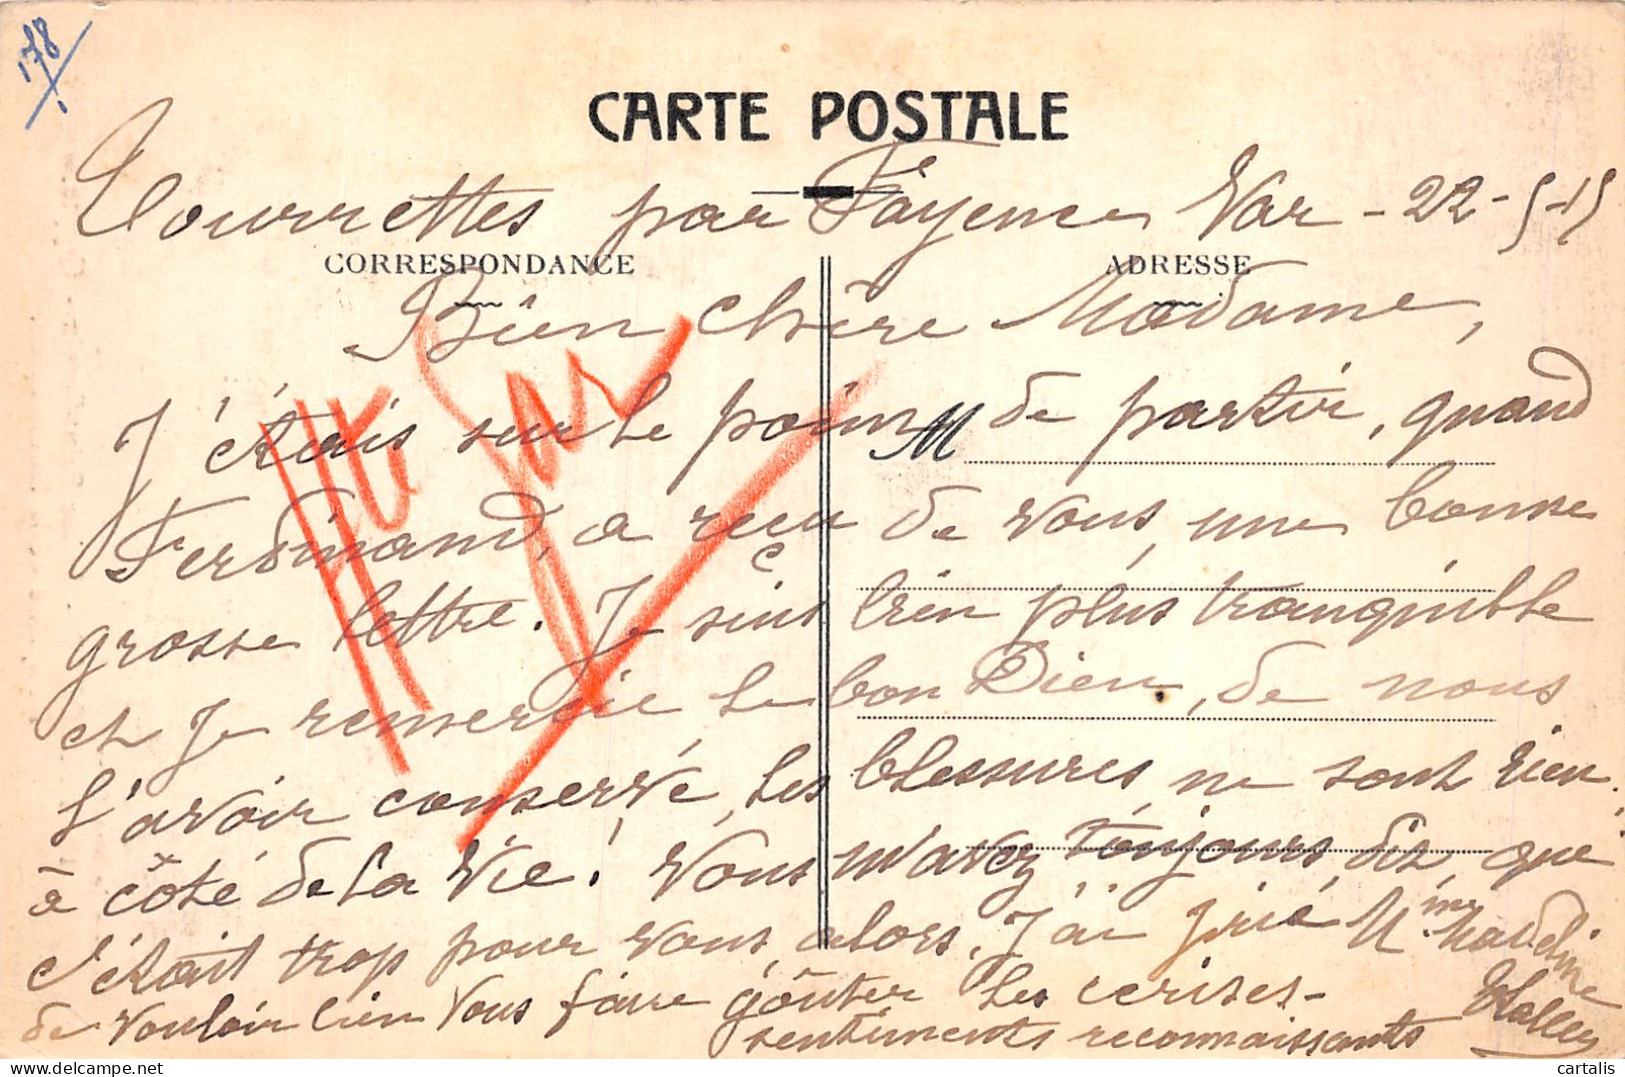 178
CARTE POSTALE
Tourrettes par Fayence Var - 22-5-15
CORRESPONDANCE
ADRESSE
Bien chère Madame,
J'étais sur le point de partir, quand
M
Ferdinand, a reçu de vous, une bonne
grosse lettre. Je suis bien plus tranquille
et je remercie le bon Dieu, de nous
l'avoir conservé, les blessures ne sont rien
à côté de la vie! Vous m'avez toujours dit, que
c'était trop pour vous, alors, j'ai prié Mme
de vouloir bien vous faire goûter les cerises-
sentiments reconnaissants
delcampe.net
cartalis